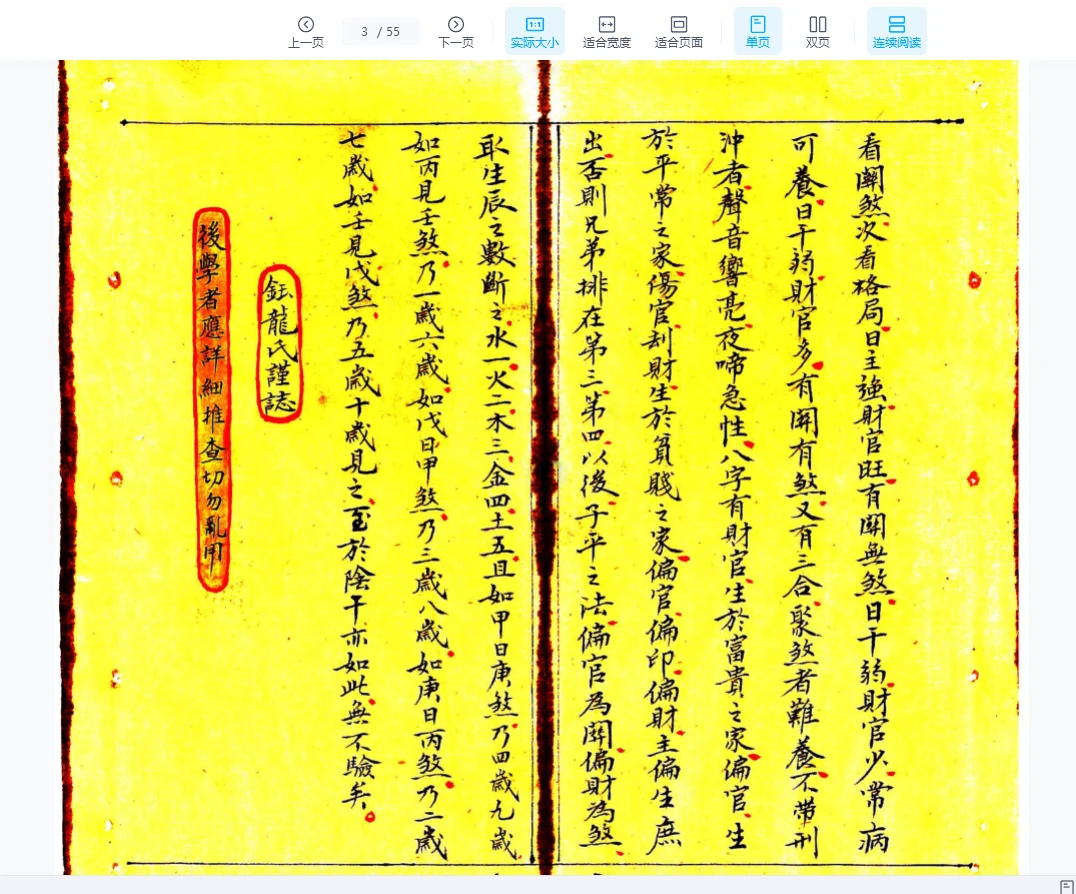 上一页
3 / 55
下一页
1:1
实际大小
适合宽度
适合页面
单页
双页
连续阅读
看關煞次看格局日主強財官旺有關無煞日干弱財官少常病
可養日干弱財官多有關有煞又有三合聚煞者難養不帶刑
沖者聲音響亮夜啼急性八字有財官生於富貴之家偏官生
於平常之家傷官刦財生於貧賤之家偏官偏印偏財主偏生庶
出否則兄弟排在第三第四以後子平之法偏官為關偏財為煞
取生辰之數斷之水一火二木三金四土五且如甲日庚煞乃四歲九歲
如丙見壬煞乃一歲六歲如戊日甲煞乃三歲八歲如庚日丙煞乃二歲
七歲如壬見戊煞乃五歲十歲見之至於陰干亦如此無不驗矣
鈺龍氏謹誌
後學者應詳細推查切勿亂用